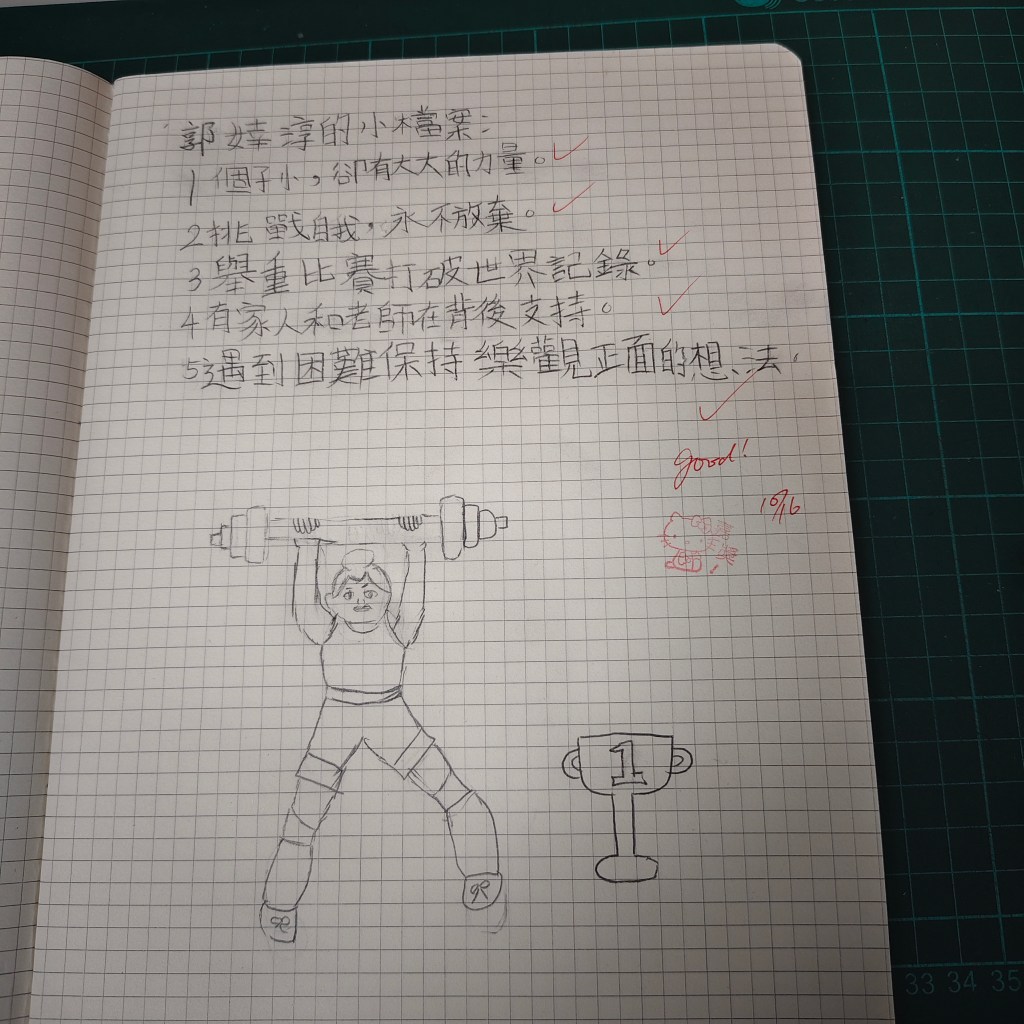 郭婞淳的小檔案：
1 個子小，卻有大大的力量。
2 挑戰自我，永不放棄。
3 舉重比賽打破世界記錄。
4 有家人和老師在背後支持。
5 遇到困難保持樂觀正面的想法。
good!
10/16
1
33 34 35